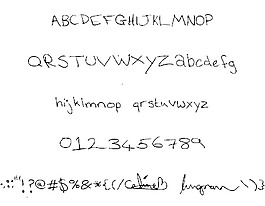 ABCDEFGHIJKLMNOP
QRSTUVWXYZabcdefg
hijklmnop qrstuvwxyz
0123456789
.,:;"'!?@#$%&*{(/ \)}